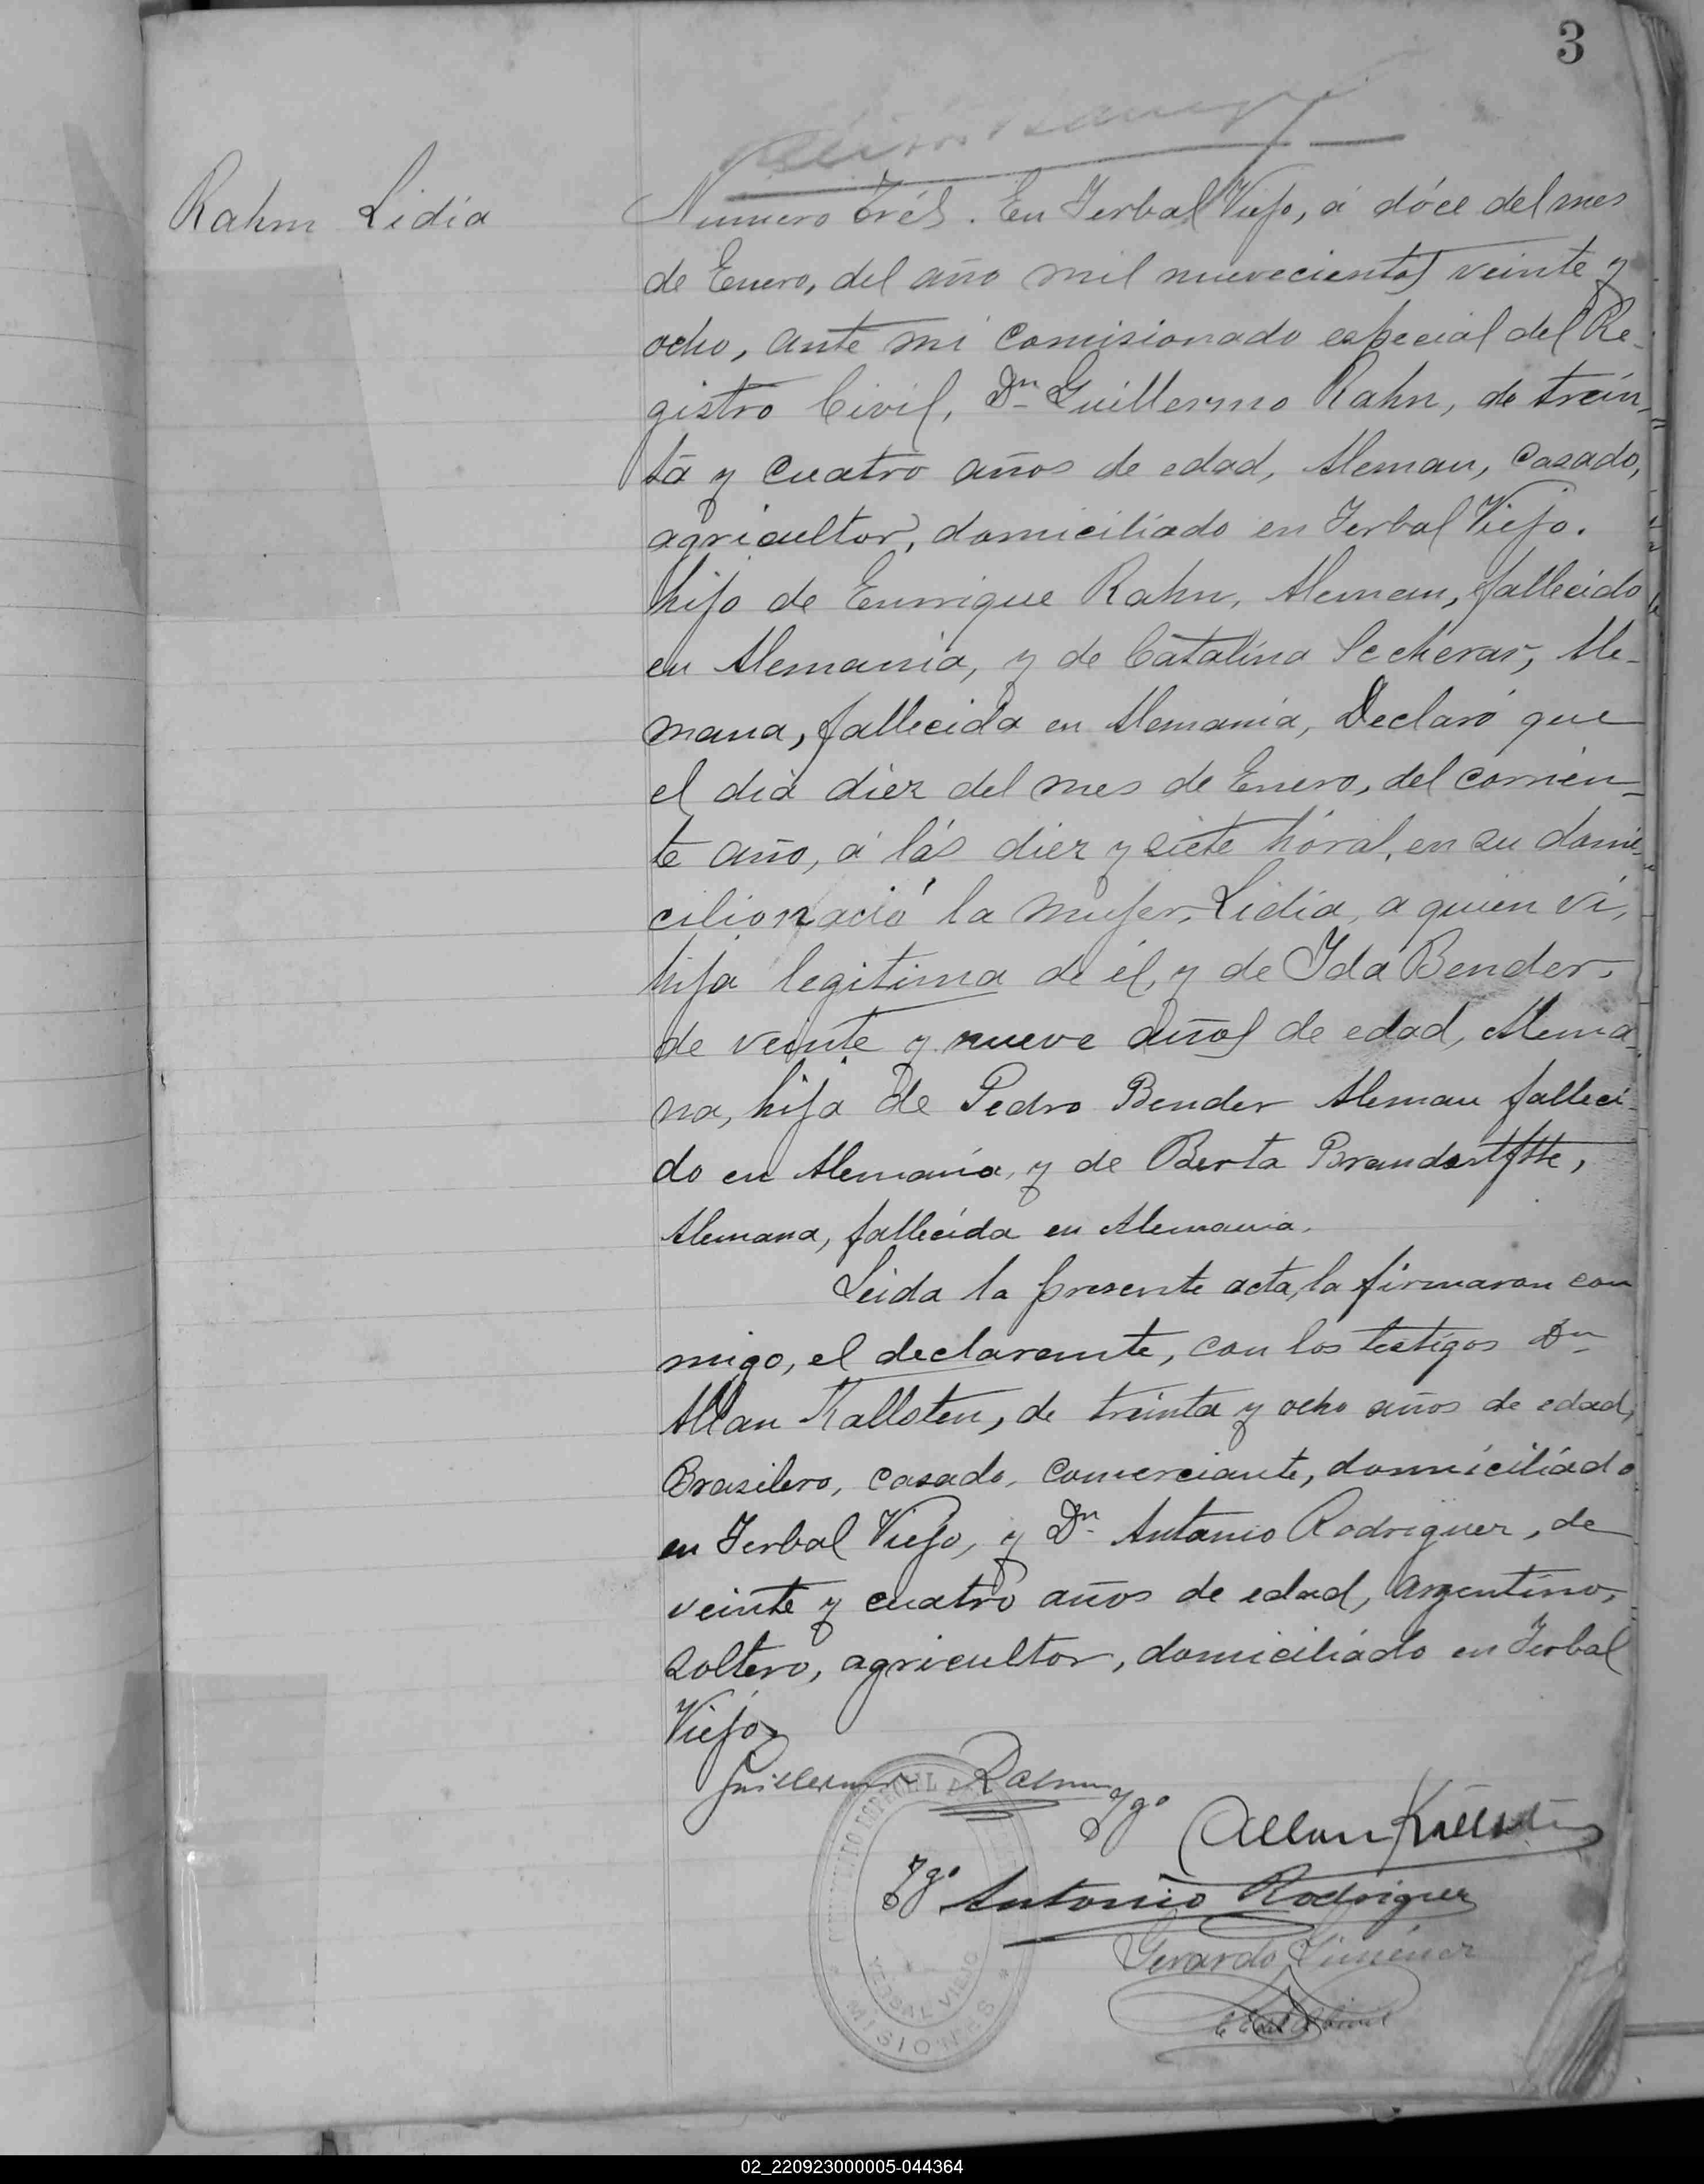 3
Rahm Lidia
Numero trés. En Yerbal Viejo, á dóce del mes
de Enero, del año mil nuevecientos veinte y
ocho, ante mi comisionado especial del Re-
gistro Civil, Dn Guillermo Rahn, de trein-
ta y cuatro años de edad, Aleman, casado,
agricultor, domiciliado en Yerbal Viejo.
hijo de Enrrique Rahn, Aleman, fallecido
en Alemania, y de Catalina Ale-
mana, fallecida en Alemania, Declaró que
el dia diez del mes de Enero, del corrien-
te año, á lás diez y siete hóras, en su domi-
cilio nació la mujer, Lidia, a quien ví,
hija legitima de él, y de Ida Bender,
de veinte y nueve años de edad, Alema-
na, hija de Pedro Bender Aleman falleci-
do en Alemania, y de Berta
Alemana, fallecida en Alemania.
Leida la presente acta, la firmaron con
migo, el declarante, con los testigos Dn
Allan Kallsten, de treinta y ocho años de edad,
Brasilero, casado, comerciante, domiciliádo
en Yerbal Viejo, y Dn Antonio Rodriguez, de
veinte y cuatro años de edad, Argentino,
soltero, agricultor, domiciliádo en Yerbal
Viejo,
Guillermo Rahm
Tgo Allan Kallsten
Tgo Antonio Rodriguez
Gerardo Giménez
YERBAL VIEJO
MISIONES
02_220923000005-044364